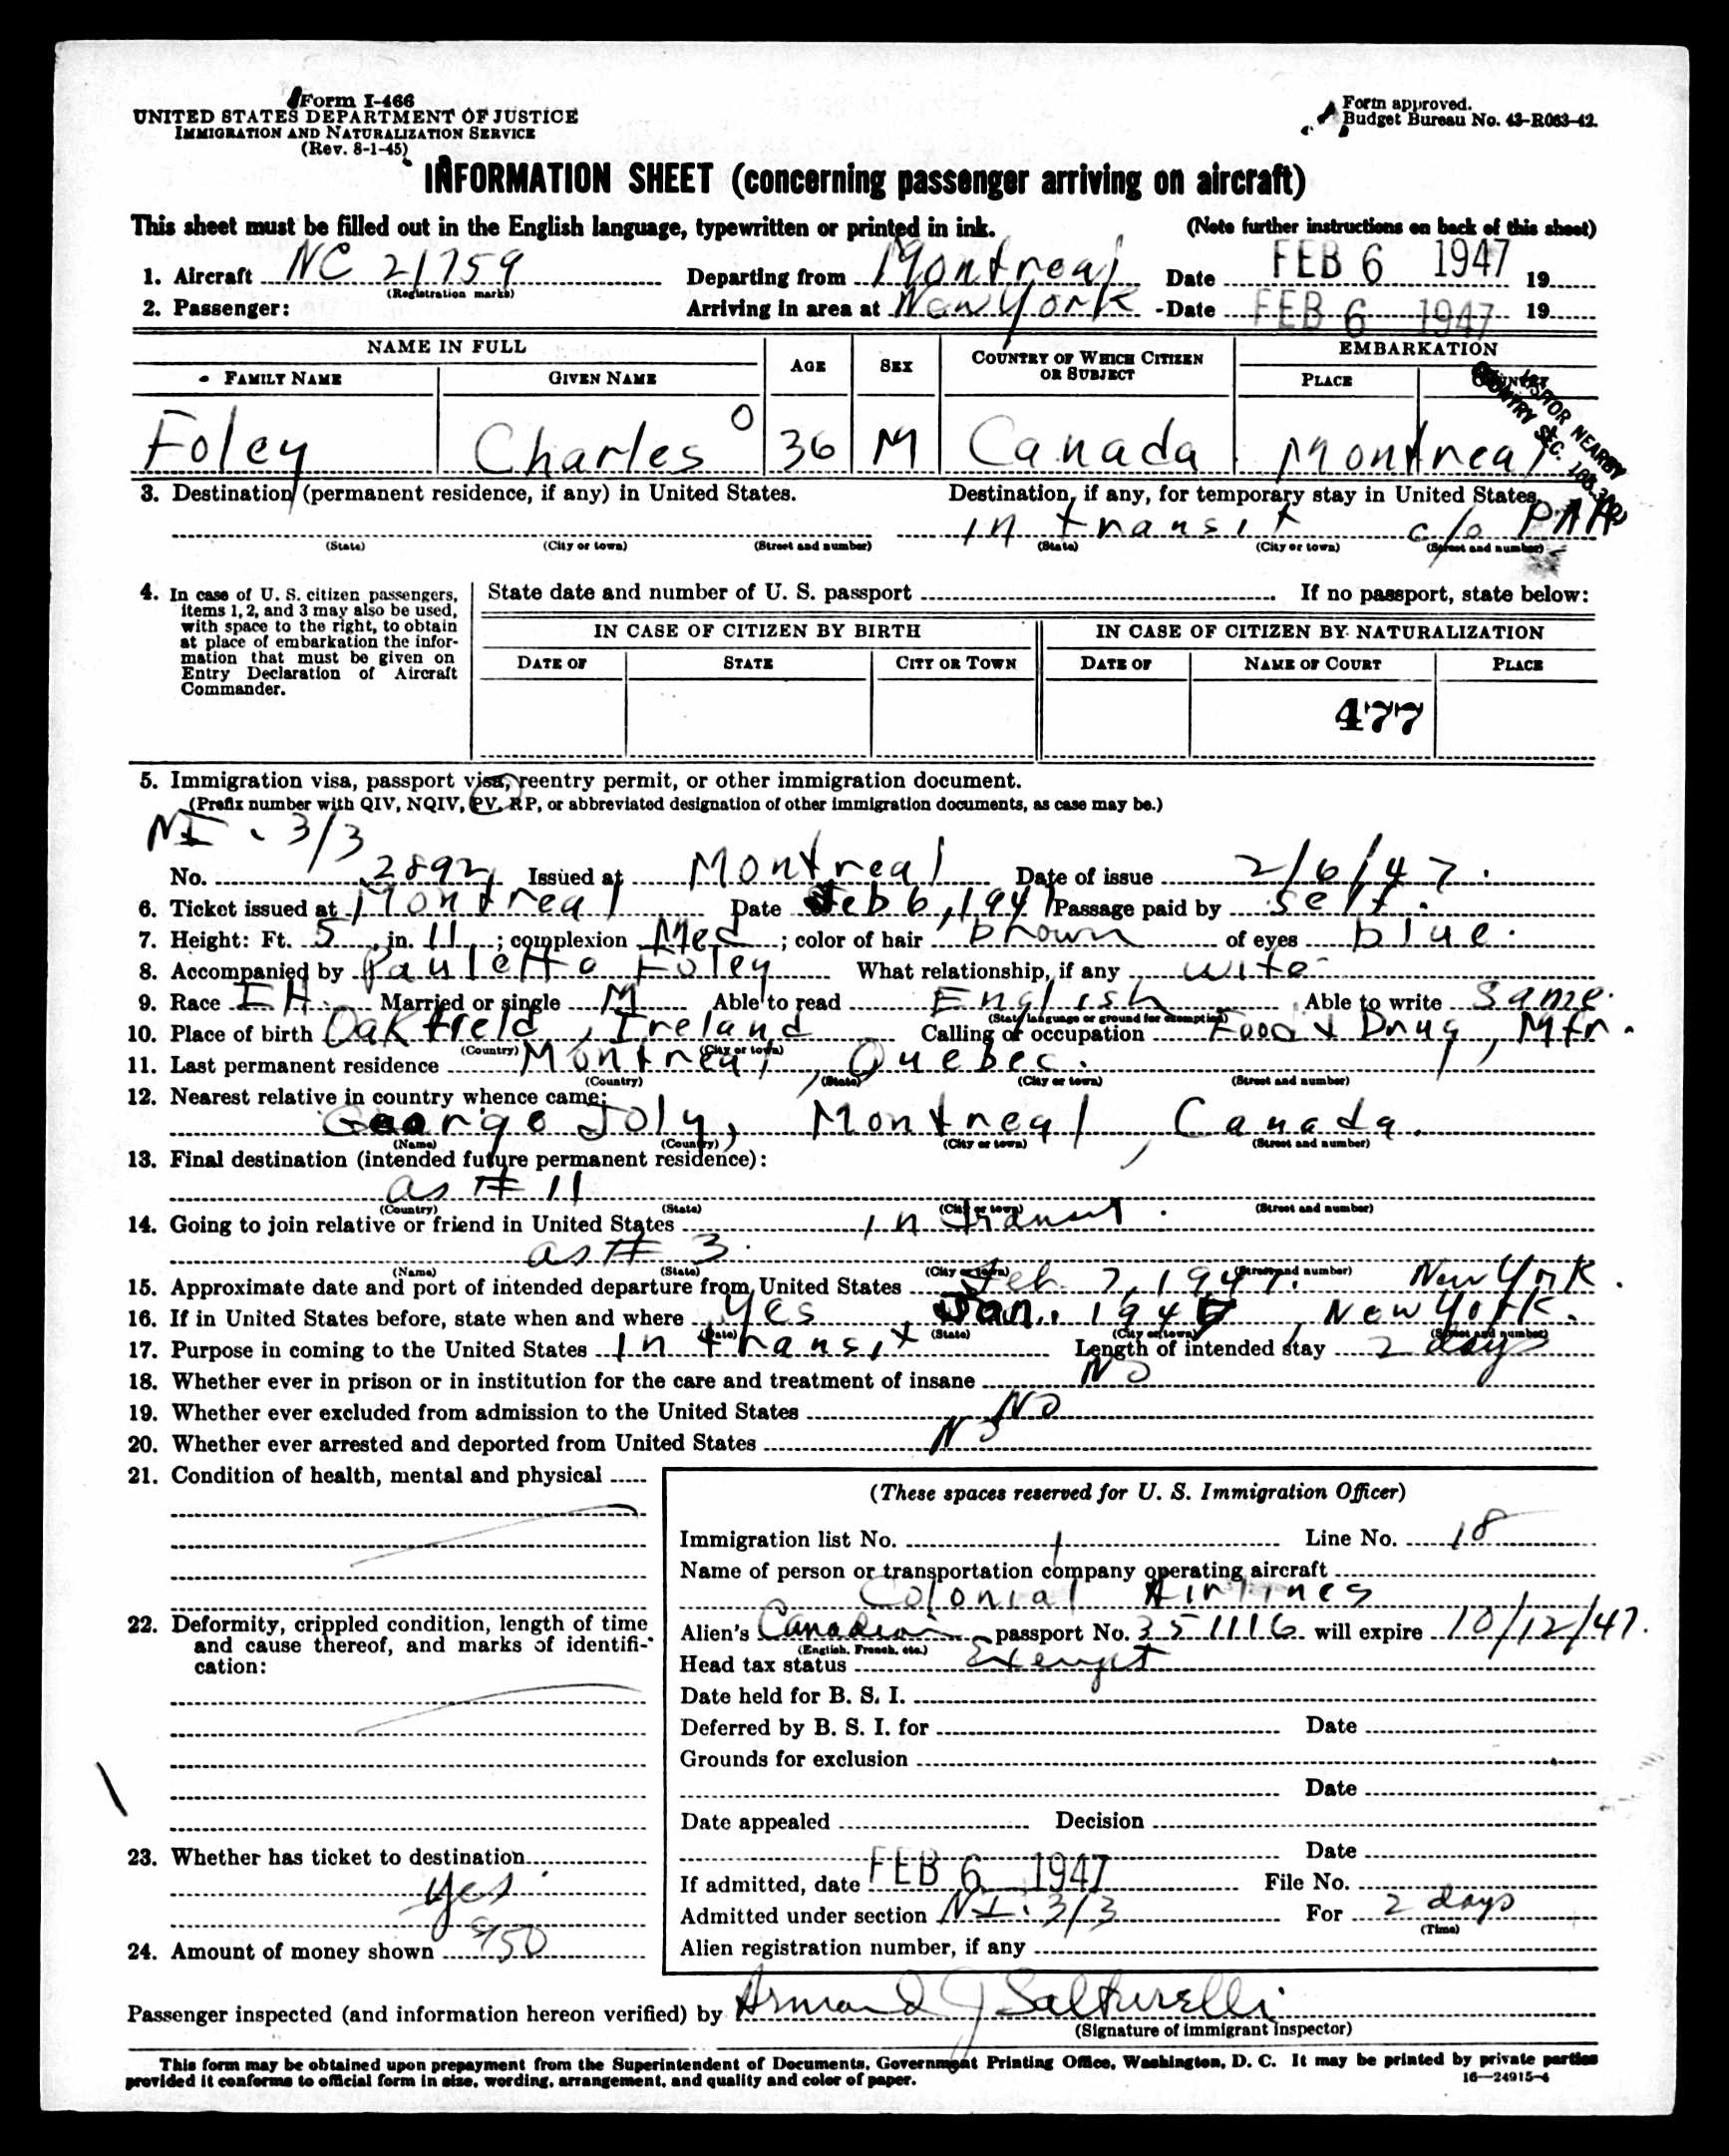 Form I-466
UNITED STATES DEPARTMENT OF JUSTICE
IMMIGRATION AND NATURALIZATION SERVICE
(Rev. 8-1-45)
Form approved.
Budget Bureau No. 43-R063-42.
INFORMATION SHEET (concerning passenger arriving on aircraft)
This sheet must be filled out in the English language, typewritten or printed in ink. (Note further instructions on back of this sheet)
1. Aircraft NC 21759 Departing from Montreal Date FEB 6 1947 19
(Registration marks)
2. Passenger: Arriving in area at New York - Date FEB 6 1947 19
NAME IN FULL AGE SEX COUNTRY OF WHICH CITIZEN OR SUBJECT EMBARKATION
FAMILY NAME GIVEN NAME PLACE COUNTRY
Foley Charles O 36 M Canada Montreal
VISITOR NEARBY
COUNTRY SEC.
3. Destination (permanent residence, if any) in United States. Destination, if any, for temporary stay in United States.
in transit c/o PAA
(State) (City or town) (Street and number) (State) (City or town) (Street and number)
4. In case of U. S. citizen passengers, items 1, 2, and 3 may also be used, with space to the right, to obtain at place of embarkation the information that must be given on Entry Declaration of Aircraft Commander.
State date and number of U. S. passport If no passport, state below:
IN CASE OF CITIZEN BY BIRTH IN CASE OF CITIZEN BY NATURALIZATION
DATE OF STATE CITY OR TOWN DATE OF NAME OF COURT PLACE
477
5. Immigration visa, passport visa, reentry permit, or other immigration document.
(Prefix number with QIV, NQIV, PV, RP, or abbreviated designation of other immigration documents, as case may be.)
NI. 3/3
No. 2892 Issued at Montreal Date of issue 2/6/47.
6. Ticket issued at Montreal Date Feb 6, 1947 Passage paid by self.
7. Height: Ft. 5 in. 11 ; complexion Med ; color of hair brown of eyes blue.
8. Accompanied by Paulette Foley What relationship, if any wife
9. Race Married or single M Able to read English Able to write same.
(State language or ground for exemption)
10. Place of birth Oakfield, Ireland Calling or occupation Food & Drug, Mfr.
(Country) (City or town)
11. Last permanent residence Montreal, Quebec.
(Country) (State) (City or town) (Street and number)
12. Nearest relative in country whence came:
George Joly, Montreal, Canada.
(Name) (Country) (City or town) (Street and number)
13. Final destination (intended future permanent residence):
as # 11
(Country) (State) (City or town) (Street and number)
14. Going to join relative or friend in United States in transit.
as # 3.
(Name) (State) (City or town) (Street and number)
15. Approximate date and port of intended departure from United States Feb. 7, 1947. New York.
16. If in United States before, state when and where Yes Jan. 1946, New York.
(Date) (State) (City or town) (Street and number)
17. Purpose in coming to the United States in transit Length of intended stay 2 days
18. Whether ever in prison or in institution for the care and treatment of insane NO
19. Whether ever excluded from admission to the United States NO
20. Whether ever arrested and deported from United States NO
21. Condition of health, mental and physical
22. Deformity, crippled condition, length of time and cause thereof, and marks of identification:
23. Whether has ticket to destination
yes
24. Amount of money shown $50
(These spaces reserved for U. S. Immigration Officer)
Immigration list No. 1 Line No. 18
Name of person or transportation company operating aircraft
Colonial Airlines
Alien's Canadian passport No. 351116 will expire 10/12/47.
(English, French, etc.)
Head tax status Exempt
Date held for B. S. I.
Deferred by B. S. I. for Date
Grounds for exclusion
Date
Date appealed Decision
Date
If admitted, date FEB 6 1947 File No.
Admitted under section NI. 3/3 For 2 days
(Time)
Alien registration number, if any
Passenger inspected (and information hereon verified) by Armand J Salturelli
(Signature of immigrant inspector)
This form may be obtained upon prepayment from the Superintendent of Documents, Government Printing Office, Washington, D. C. It may be printed by private parties
provided it conforms to official form in size, wording, arrangement, and quality and color of paper. 16—24915-4